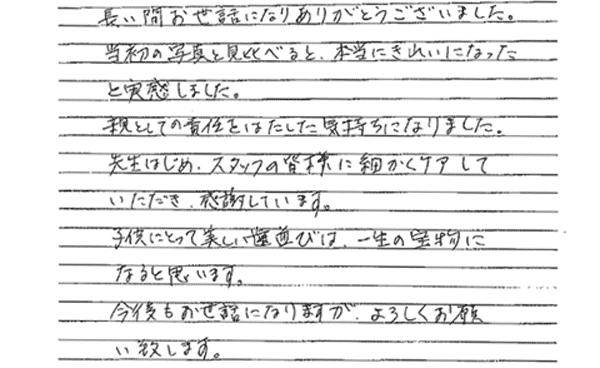 長い間お世話になりありがとうございました。
当初の写真と見比べると、本当にきれいになった
と実感しました。
親としての責任をはたした気持ちになりました。
先生はじめ、スタッフの皆様に細かくケアして
いただき、感謝しています。
子供にとって美しい歯並びは、一生の宝物に
なると思います。
今後もお世話になりますが、よろしくお願
い致します。